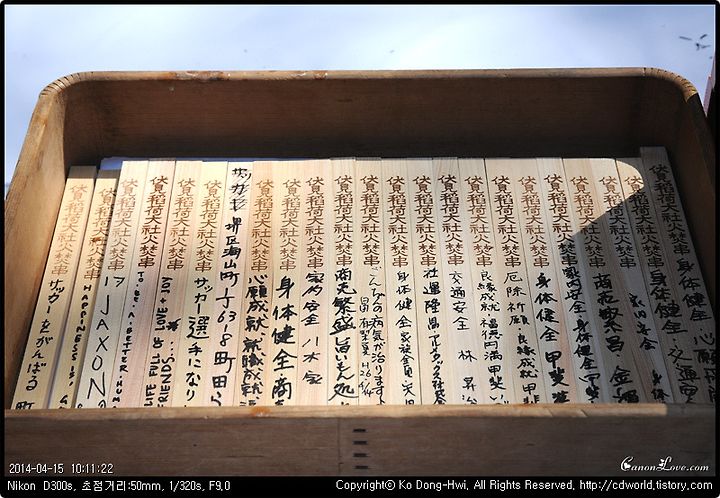 伏見稲荷大社火焚串
サッカーをがんばる 町
伏見稲荷大社火焚串
HAPPINESS IS,
伏見稲荷大社火焚串
JAXON
伏見稲荷大社火焚串
TO. BE. A. BETTER. HUM
伏見稲荷大社火焚串
LIFE FULL OF LOVE + JOY
FRIENDS
伏見稲荷大社火焚串
サッカー選手になり
堺区海山町 町田
伏見稲荷大社火焚串
心願成就 就職成就
伏見稲荷大社火焚串
身体健全 商
伏見稲荷大社火焚串
家内安全 八木家
伏見稲荷大社火焚串
商売繁盛 旨いもん処
伏見稲荷大社火焚串
病気が治ります
H26 4/14
伏見稲荷大社火焚串
身体健全
伏見稲荷大社火焚串
社運隆昌
伏見稲荷大社火焚串
交通安全 林
伏見稲荷大社火焚串
良縁成就 福徳円満 甲斐
伏見稲荷大社火焚串
厄除祈願 良縁成就 甲斐
伏見稲荷大社火焚串
身体健全 甲斐
伏見稲荷大社火焚串
家内安全 身体健全 甲
伏見稲荷大社火焚串
商売繁昌 金
伏見稲荷大社火焚串
伏見稲荷大社火焚串
身体健全 交通安
身体健全 心願
2014-04-15 10:11:22
CanonLove.com
Nikon D300s, 초점거리:50mm, 1/320s, F9.0
Copyright© Ko Dong-Hwi, All Rights Reserved, http://cdworld.tistory.com